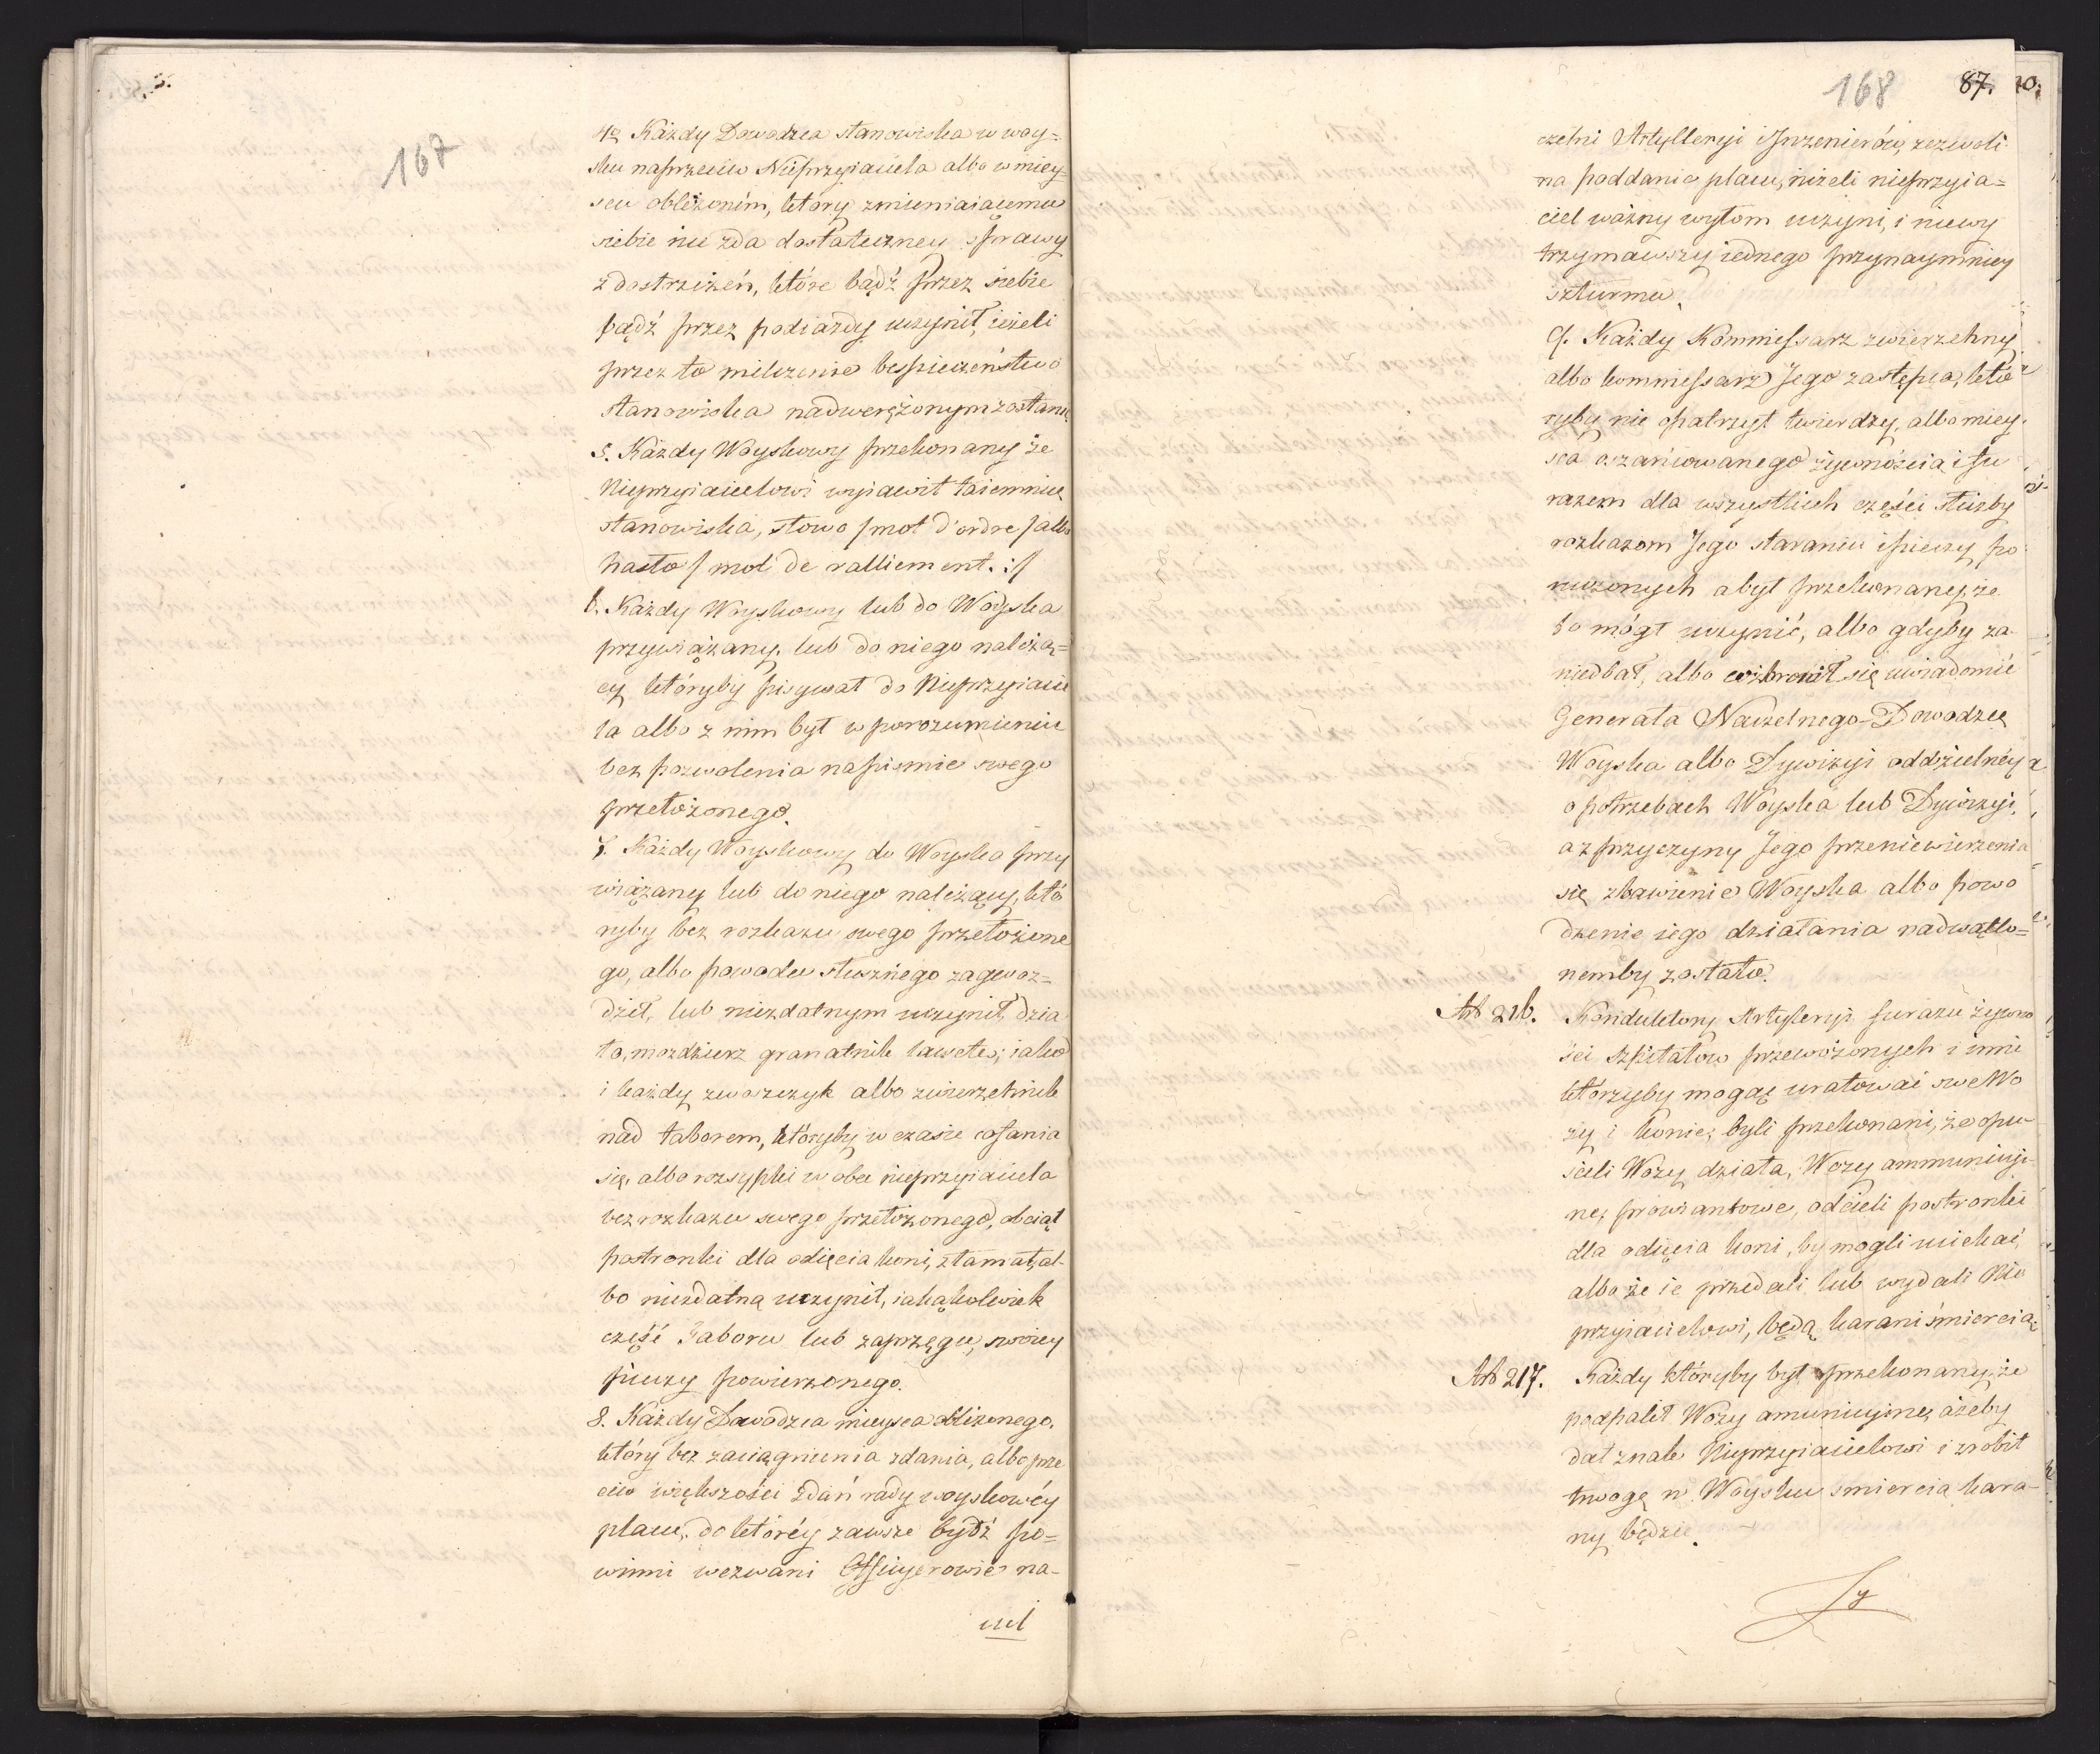 167
4º Każdy Dowodzca stanowiska w woy=
sku naprzeciw Nieprzyiaciela albo w miey=
scu oblężoném, który zmieniaiącemu
siebie nie zda dostateczney sprawy
z dostrzeżeń, które bądź przez siebie
bądź przez podiazdy uczynił, ieżeli
przez to milczenie bespieczeństwo
stanowiska nadwerężonym zostanie.
5. Każdy Woyskowy przekonany że
Nieprzyiacielowi wyiawił taiemnicę
stanowiska, słowo /mot d'ordre/ albo
hasło / mot de ralliement. :/
6. Każdy Woyskowy lub do Woyska
przywiązany, lub do niego należą=
cy któryby pisywał do Nieprzyiacie
la albo z nim był w porozumieniu
bez pozwolenia na piśmie swego
przełożonego.
7. Każdy Woyskowy do Woyska przy
wiązany lub do niego należący, któ
ryby bez rozkazu swego przełożone
go, albo powodu słusznego zagwoz=
dził, lub niezdatnym uczynił, dzia
ło, mozdzierz granatnik lawetę, iako
i każdy zwoszczyk albo zwierzchnik
nad taborem, któryby w czasie cofania
się, albo rozsypki w obec nieprzyiaciela
bez rozkazu swego przełożonego, obciął
postronki dla odięcia koni, złamał, al-
bo niezdatną uczynił, iakąkolwiek
część Taboru lub zaprzęgu, swoiey
pieczy powierzonego.
8. Każdy Dowodzca mieysca oblężonego,
który bez zaciągnienia zdania, albo prze
ciw większości zdań rady woyskowéy
placu, do któréy zawsze bydź po=
winni wezwani Officyerowie na-
czel
168
87.
czelni Artylleryi i Inzenierów, zezwoli
na poddanie placu, niżeli nieprzyia=
ciel ważny wyłom uczyni, i niewy
trzymawszy iednego przynaymniey
szturmu.
9. Każdy Kommissarz zwierzchny
albo kommissarz Jego zastępca, któ
ryby nie opatrzył twierdzy, albo miey.
sca oszańcowanego żywnością i fu
razem dla wszystkich części służby
rozkazom Jego staraniu i pieczy po
ruczonych a był przekonany, że
to mógł uczynić, albo gdyby za
niedbał, albo wzbronił się uwiadomić
Generała Naczelnego-Dowodzcę
Woyska albo Dywizyi oddzielnéy
o potrzebach Woyska lub Dywizyi,
a z przyczyny Jego przeniewierzenia
się zbawienie Woyska albo powo
dzenie iego działania nadwątlo=
nemby zostało.
Art 216. Konduktory Artyleryi furazu żywno
ści szpitalow przewożonych i inni
którzyby mogąc uratować swe Wo
zy i konie, byli przekonani, że opu
ścili Wozy działa, Wozy ammunicyi
ne, prowiantowe, odcieli postronki
dla odięcia koni, by mogli uciekać,
albo że ie przedali lub wydali Nie
przyiacielowi, będą karani śmiercią.
Art 217. Każdy któryby był przekonany, że
podpalił Wozy amunicyine, ażeby
dał znak Nieprzyiacielowi i zrobił
trwogę w Woysku śmiercią kara-
ny będzie.